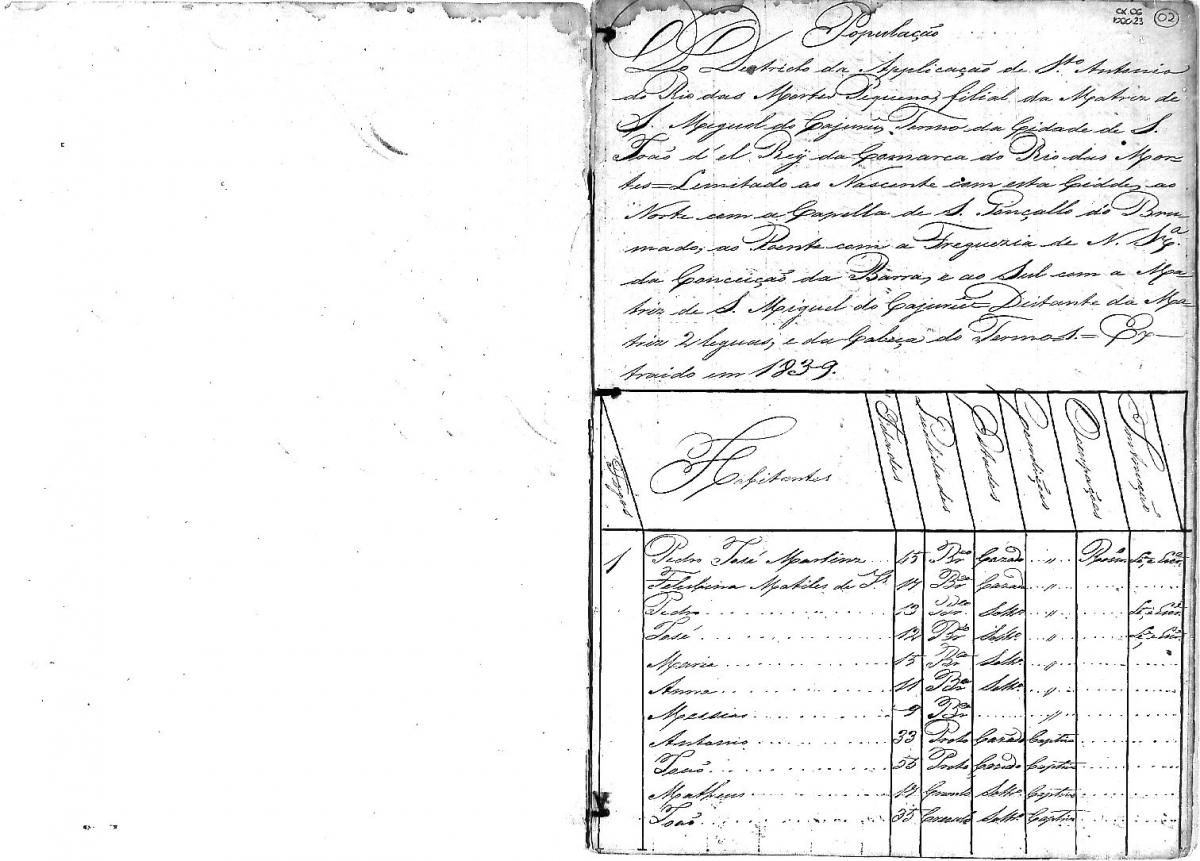 CX.06
DOC 23
02
População
Do Destricto da Applicação de Sto Antonio
do Rio das Mortes Pequeno, filial da Matriz de
S. Miguel do Cajurû, Termo da Cidade de S.
João d'el Rey da Comarca do Rio das Mor-
tes = Lemitado ao Nascente com esta Cidde, ao
Norte com a Capella de S. Gonçallo do Bru-
mado, ao Poente com a Freguezia de N. Snrª
da Conceição da Barra, e ao Sul com a Ma-
triz de S. Miguel do Cajurû = Distante da Ma-
triz 2 leguas, e da Cabeça do Termo 1. = Ex-
traido em 1839.
Fogos Habitantes Idades Qualidades Estados Condições Occupações Instrucção
1 Pedro José Martins 45 Bco Cazado " Lê, e Escr.
Felisbina Matildes de 14 Bca Cazad "
Pedro 13 Bco Soltro " Lê, e Escr.
José 12 Bco Soltro " Lê, e Escr.
Maria 15 Bca Soltra "
Anna 11 Bca Soltra "
Messias 9 Bco "
Antonio 33 Preto Cazado Captivo
João 55 Preto Cazado Captivo
Matheus Crioulo Soltro Captivo
João 35 Crioulo Soltro Captivo